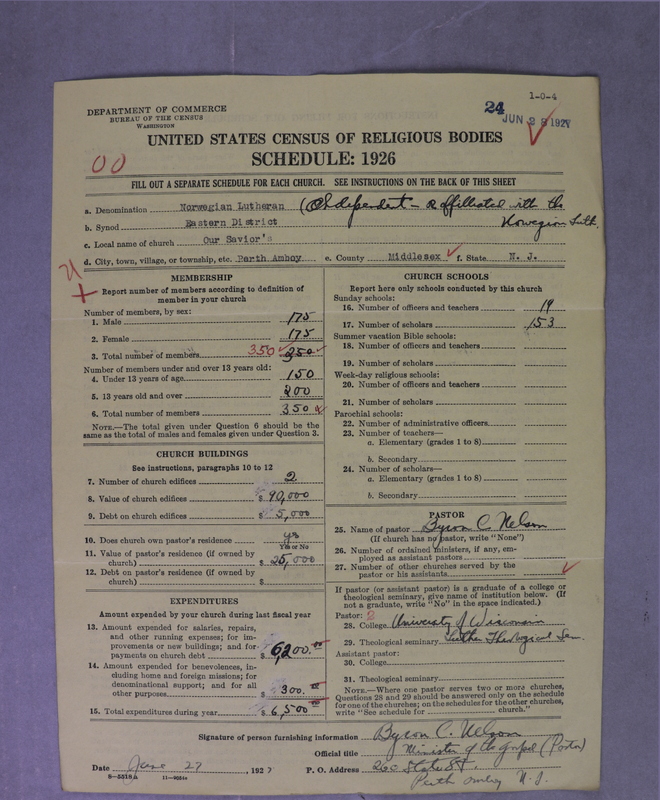 1-0-4
DEPARTMENT OF COMMERCE
BUREAU OF THE CENSUS
WASHINGTON
24
JUN 28 1927
UNITED STATES CENSUS OF RELIGIOUS BODIES
SCHEDULE: 1926
00
FILL OUT A SEPARATE SCHEDULE FOR EACH CHURCH. SEE INSTRUCTIONS ON THE BACK OF THIS SHEET
a. Denomination Norwegian Lutheran (Independent - affiliated with the
Norwegian Luth.
b. Synod Eastern District
c. Local name of church Our Savior's
d. City, town, village, or township, etc. Perth Amboy e. County Middlesex f. State N. J.
MEMBERSHIP
Report number of members according to definition of member in your church
Number of members, by sex:
1. Male 175
2. Female 175
3. Total number of members 350 350
Number of members under and over 13 years old:
4. Under 13 years of age 150
5. 13 years old and over 200
6. Total number of members 350
NOTE.—The total given under Question 6 should be the
same as the total of males and females given under Question 3.
CHURCH BUILDINGS
See instructions, paragraphs 10 to 12
7. Number of church edifices 2
8. Value of church edifices $ 90,000
9. Debt on church edifices $ 5,000
10. Does church own pastor's residence yes
Yes or No
11. Value of pastor's residence (if owned by
church) $ 25,000
12. Debt on pastor's residence (if owned by
church) $
EXPENDITURES
Amount expended by your church during last fiscal year
13. Amount expended for salaries, repairs,
and other running expenses; for im-
provements or new buildings; and for
payments on church debt $ 6,200.00
14. Amount expended for benevolences, in-
cluding home and foreign missions; for
denominational support; and for all
other purposes $ 300.00
15. Total expenditures during year $ 6,500
CHURCH SCHOOLS
Report here only schools conducted by this church
Sunday schools:
16. Number of officers and teachers 19
17. Number of scholars 153
Summer vacation Bible schools:
18. Number of officers and teachers
19. Number of scholars
Week-day religious schools:
20. Number of officers and teachers
21. Number of scholars
Parochial schools:
22. Number of administrative officers
23. Number of teachers—
a. Elementary (grades 1 to 8)
b. Secondary
24. Number of scholars—
a. Elementary (grades 1 to 8)
b. Secondary
PASTOR
25. Name of pastor Byron C. Nelson
(If church has no pastor, write "None")
26. Number of ordained ministers, if any, em-
ployed as assistant pastors
27. Number of other churches served by the
pastor or his assistants
If pastor (or assistant pastor) is a graduate of a college or
theological seminary, give name of institution below. (If
not a graduate, write "No" in the space indicated.)
Pastor:
28. College University of Wisconsin
29. Theological seminary Luther Theological Sem.
Assistant pastor:
30. College
31. Theological seminary
NOTE.—Where one pastor serves two or more churches,
Questions 28 and 29 should be answered only on the schedule
for one of the churches; on the schedules for the other churches,
write "See schedule for church."
Signature of person furnishing information Byron C. Nelson
Official title Minister of the gospel (Pastor)
Date June 27, 1927 P. O. Address 260 State St.
Perth Amboy N. J.